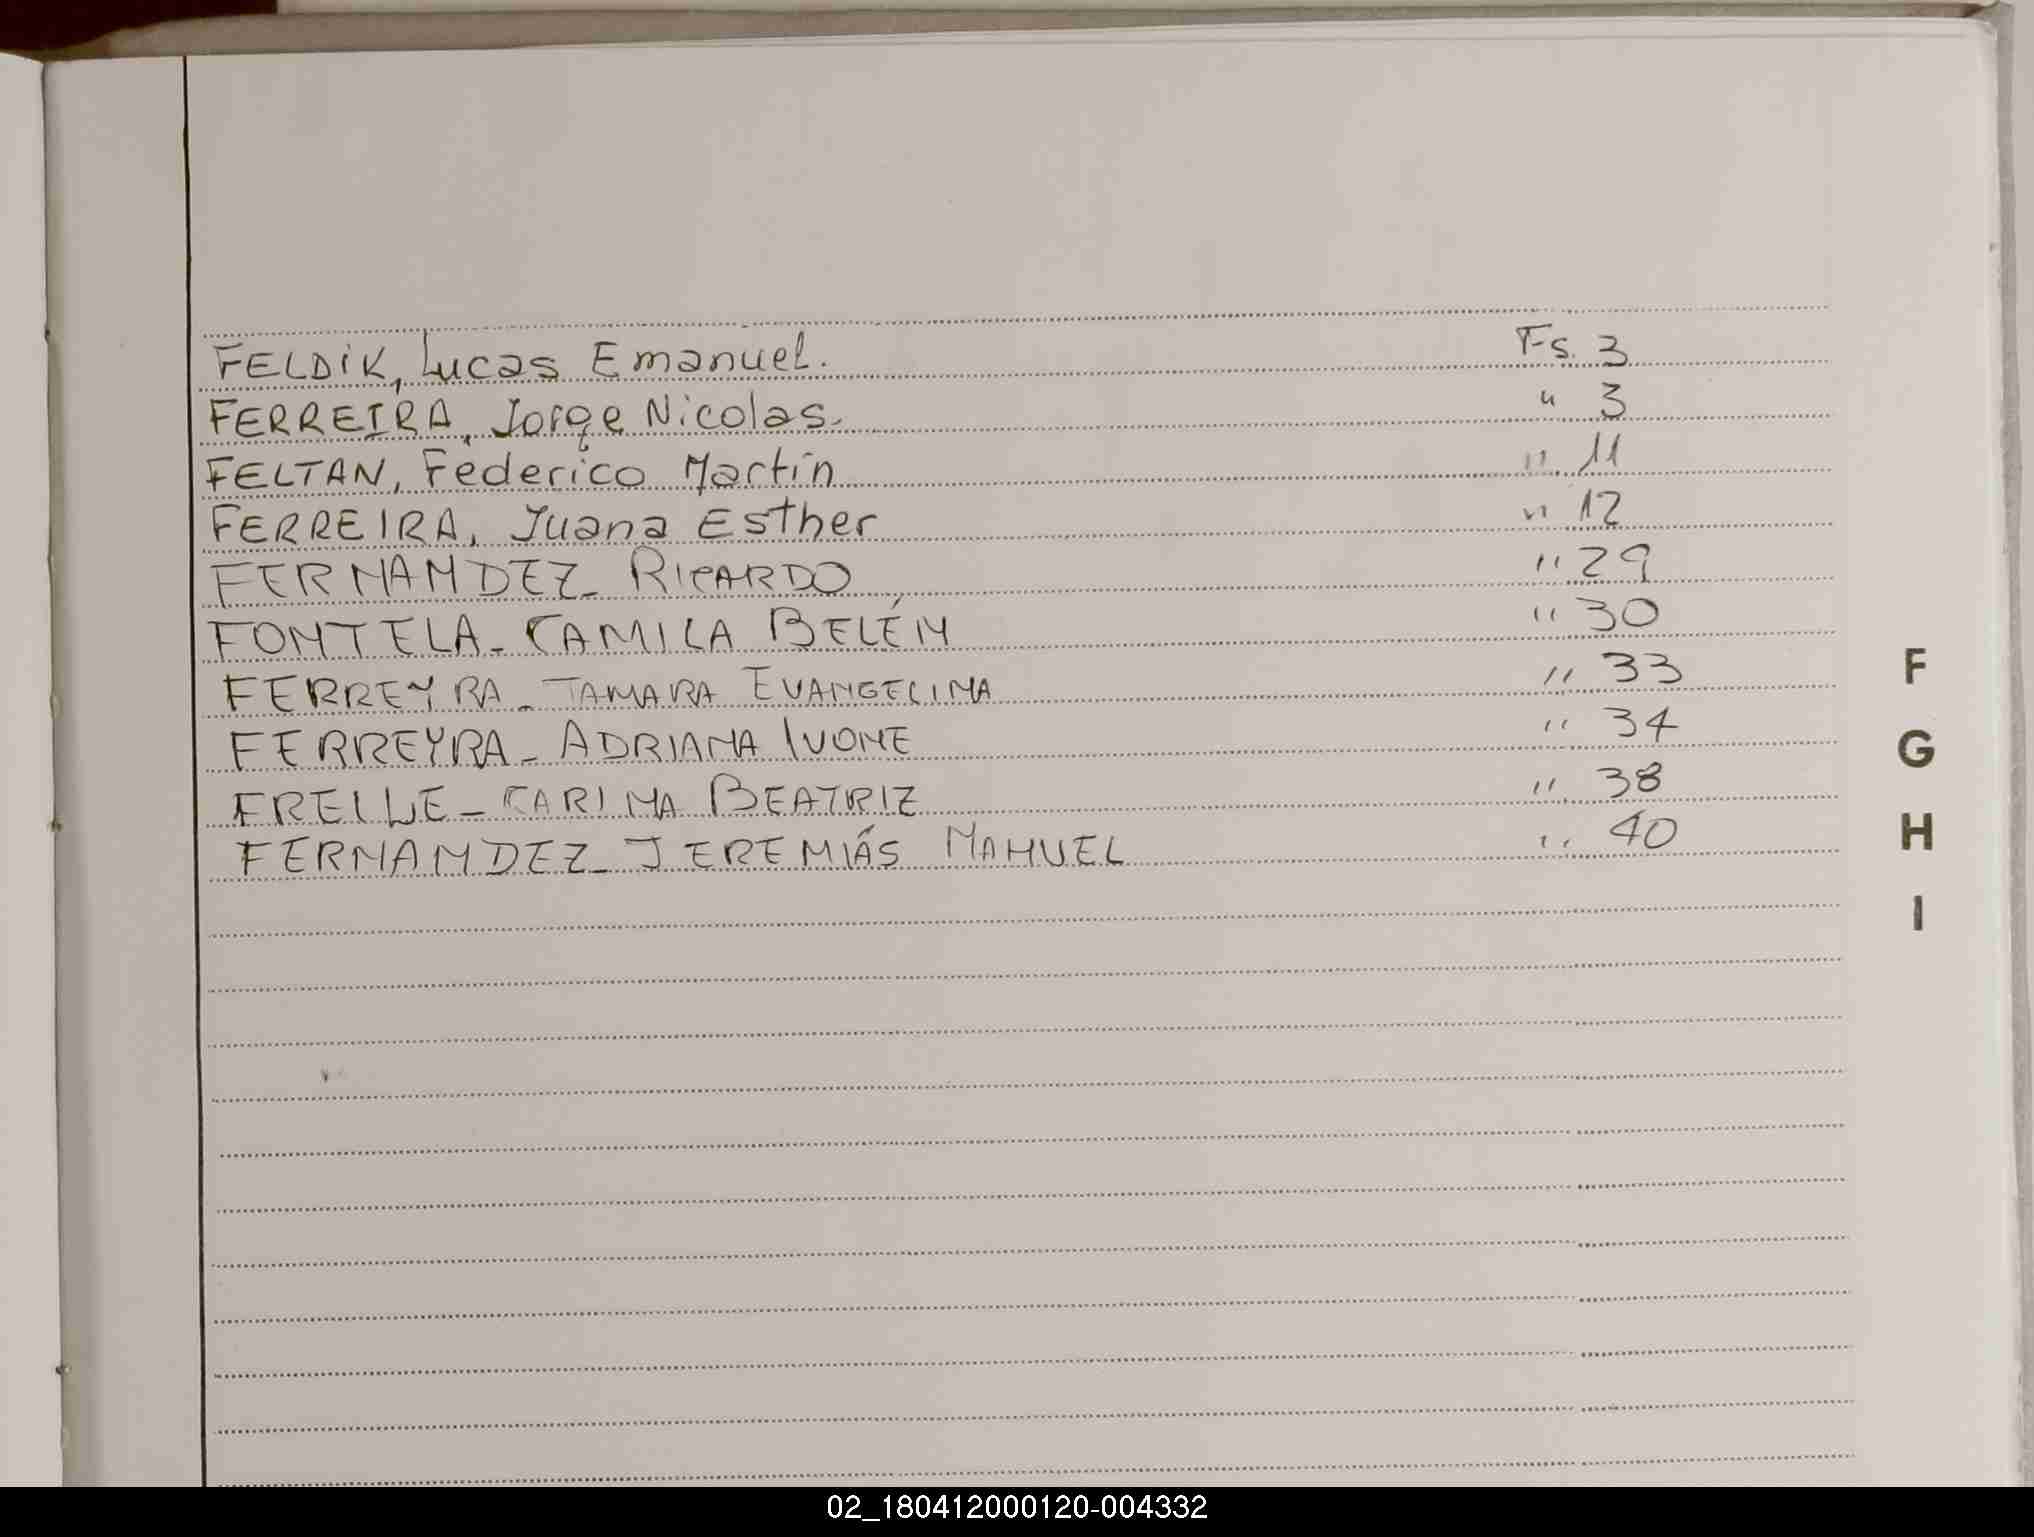 FELDIK, Lucas Emanuel. Fs. 3
FERREIRA, Jorge Nicolas. " 3
FELTAN, Federico Martín " 11
FERREIRA, Juana Esther " 12
FERNANDEZ_ RICARDO " 29
FONTELA_ CAMILA BELÉN " 30
FERREYRA_ TAMARA EVANGELINA " 33
FERREYRA_ ADRIANA IVONE " 34
FRELLE_ CARINA BEATRIZ " 38
FERNANDEZ_ JEREMIÁS MANUEL " 40
F
G
H
I
02_180412000120-004332